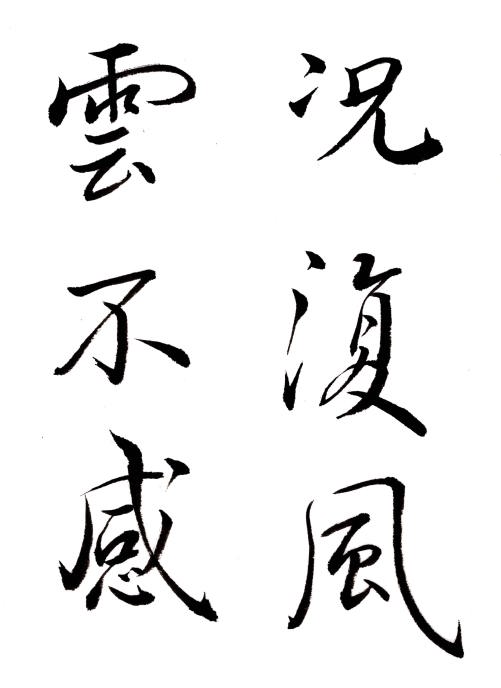 况復風
雲不感